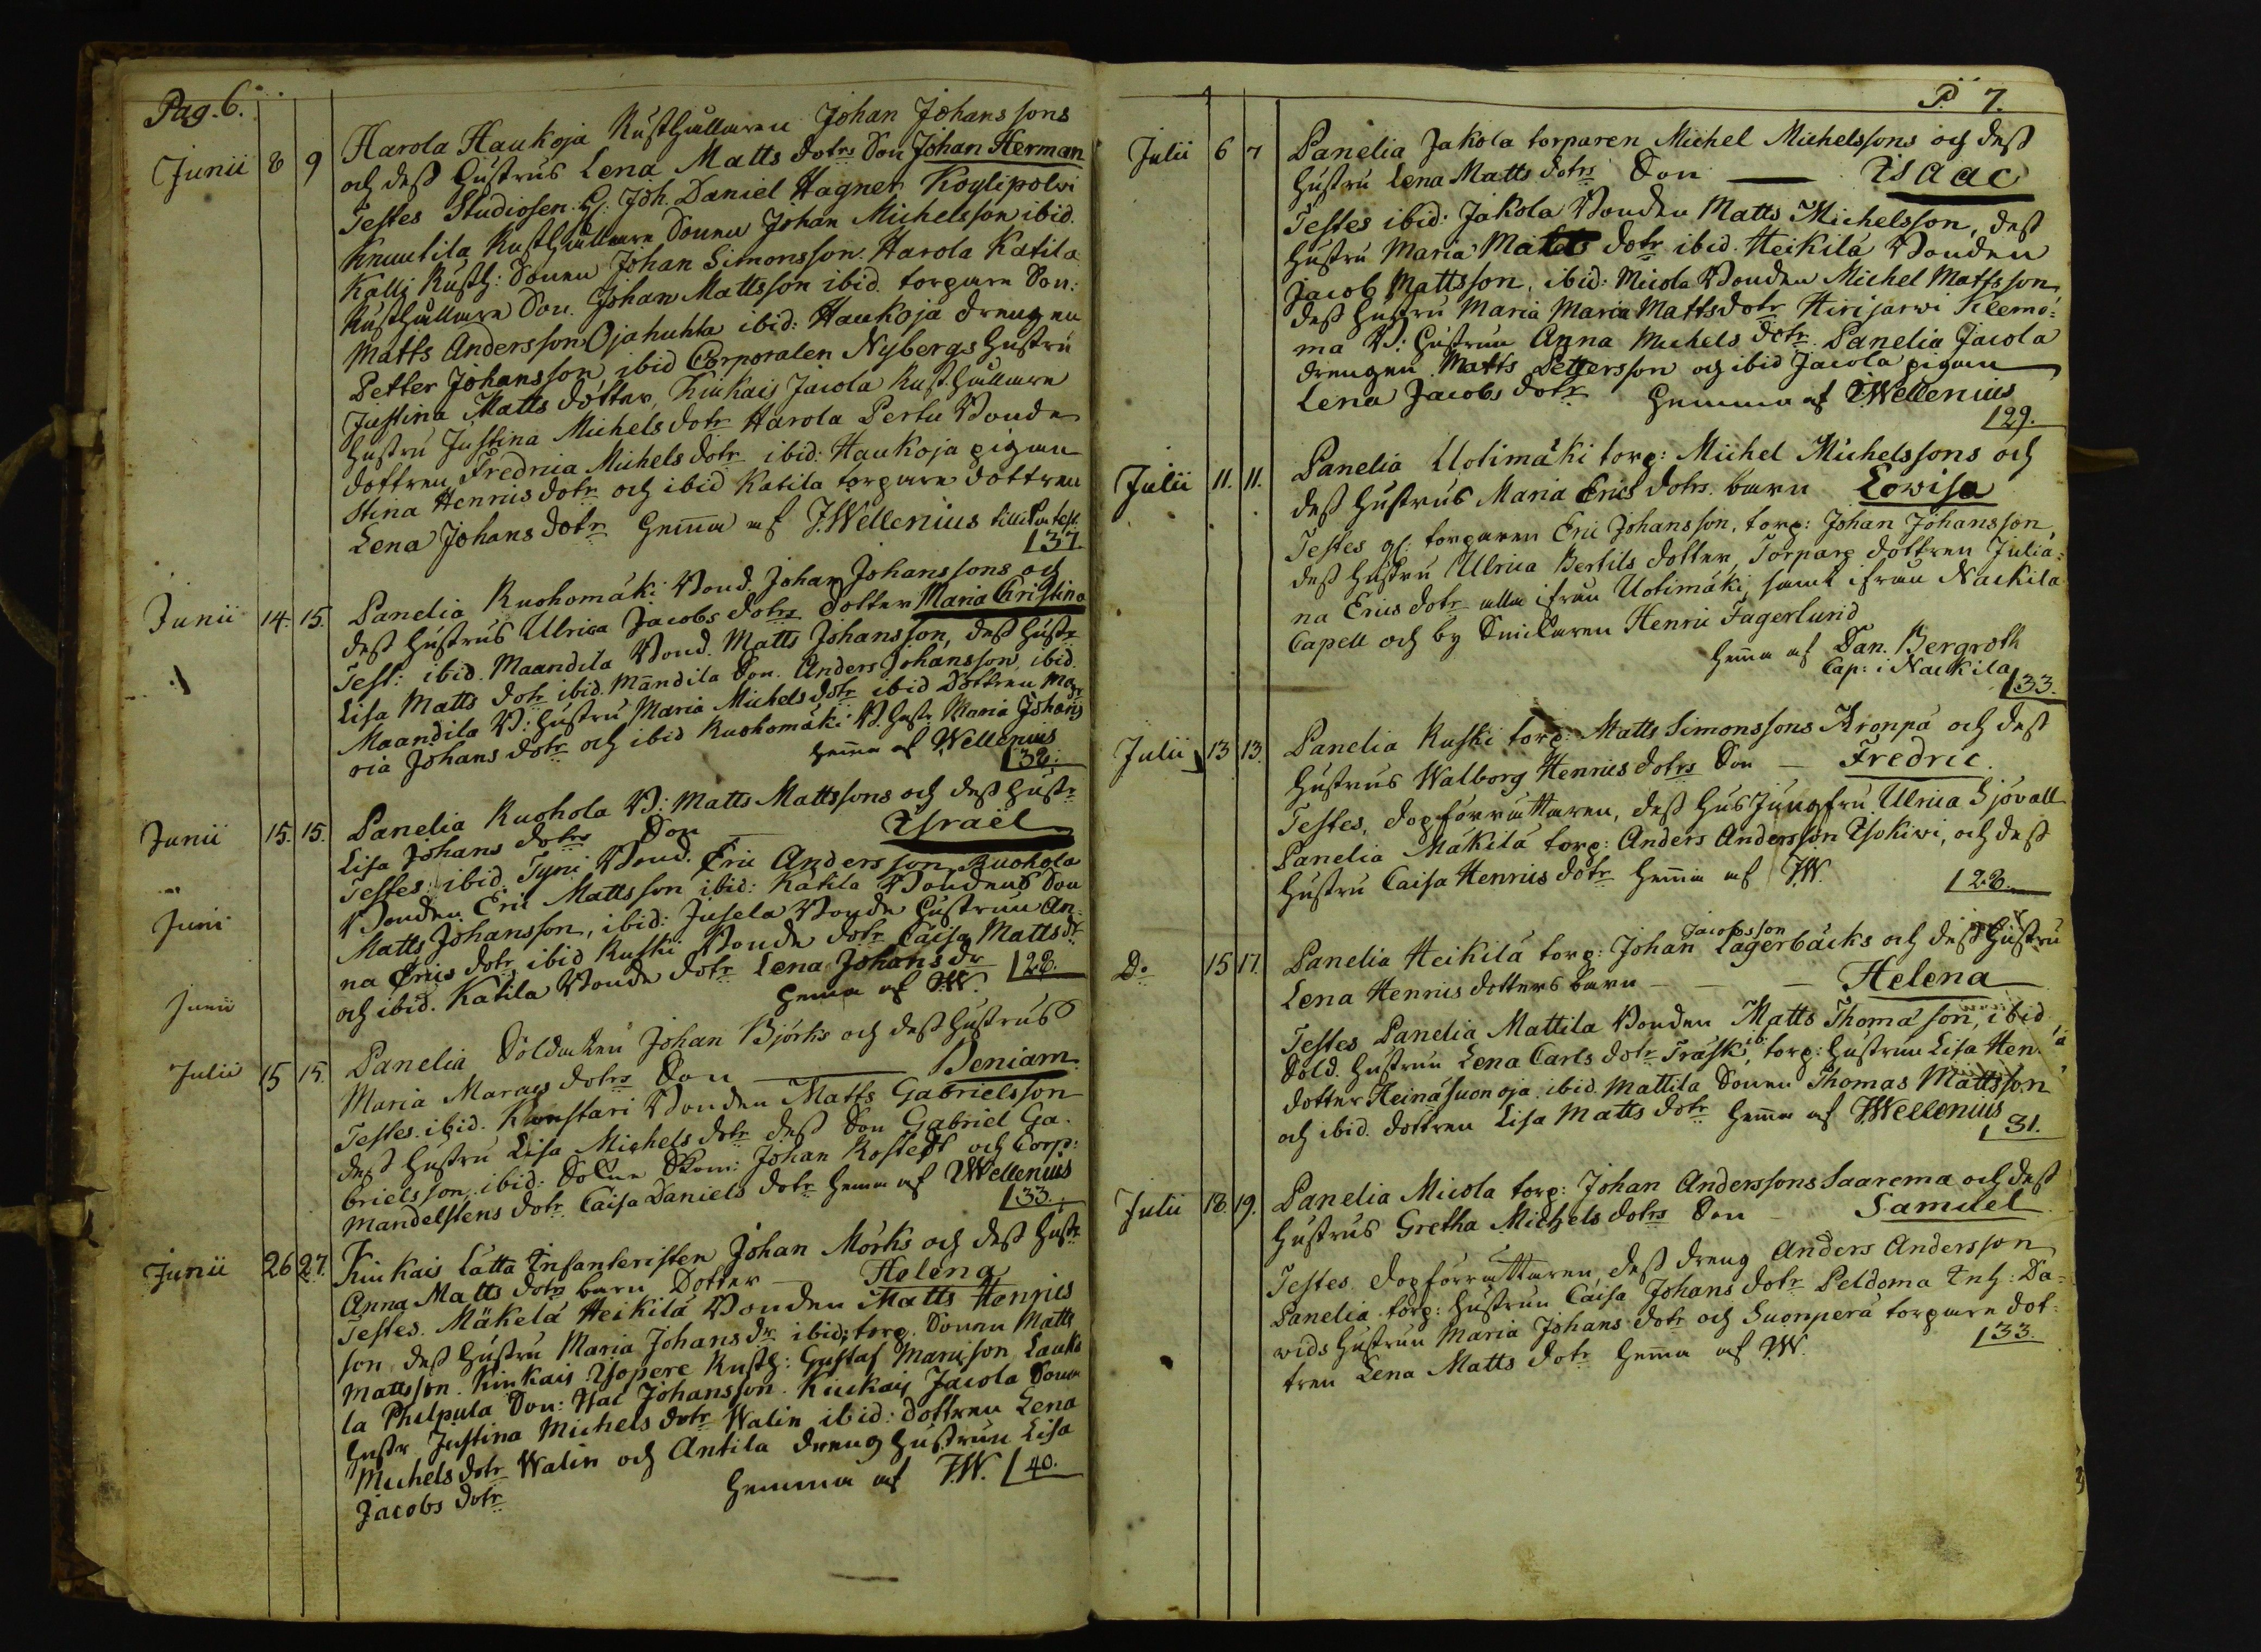 Pag. 6.
Junii 8 9 Harola Haukoja Rusthållaren Johan Johanssons
och dess Hustrus Lena Matts dotrs Son Johan Herman
Testes Studiosen H: Joh. Daniel Hagner Köylipolvi
Knuutila Rusthållare Sonen Johan Michelsson ibid.
Kallj Rusth: Sonen Johan Simonsson. Harola Katila
Rusthållare Son. Johan Mattsson ibid. torpare Son:
Matts Andersson Ojahuhta ibid: Haukoja drengen
Petter Johansson ibid Corporalen Nybergs Hustru
Justina Matts dotter, Kiukais Jacola Rusthållare
Hustru Justina Michels dotr Harola Pertu Bonde
dottren Fredrica Michels dotr ibid: Haukoja pigan
Stina Henrics dotr och ibid Katila torpare dottren
Lena Johans dotr Hemma af J. Wellenius
37.
Junii 14. 15. Panelia Ruohomäki Bond. Johan Johanssons och
dess Hustrus Ulrica Jacobs dotrs dotter Maria Christina
Test: ibid. Maandila Bond. Matts Johansson, dess Hustr
Lisa Matts dotr ibid. Mandila Son. Anders Johansson, ibid.
Maandila B: Hustru Maria Michels dotr ibid Dottren Ma
ria Johans dotr och ibid Ruohomäki B. Hustr Maria Johans
Hema af Wellenius
32.
Junii 15. 15. Panelia Ruohola B: Matts Mattssons och dess Hustr
Lisa Johans dotrs Son Israël
Testes: ibid. Tyni Bond. Eric Andersson Ruohola
Juni
Bonden Eric Mattsson ibid: Katila Bondens Son
Matts Johansson, ibid: Jusela Bonde Hustrun An-
na Erics dotr ibid Ruski Bonde dotr Caisa Matts dr
Junii
och ibid. Katila Bonde dotr Lena Johans dr
Hema af J.W. 28.
Julii 15 15. Panelia Soldaten Johan Björks och dess Hustrus
Maria Marcus dotrs Son Beniam.
Testes. ibid. Konstari Bonden Matts Gabrielsson
dess Hustru Lisa Michels dotr dess Son Gabriel Ga-
brielsson, ibid: Johan Rostedt och Corp:
Mandelstens dotr Caisa Daniels dotr Hema af J Wellenius
33.
Junii 26 27. Kiukais Lättä Infanteristen Johan Mörks och dess Hustr
Anna Matts dotrs barn Dotter Helena
Testes. Mäkelä Heikilä Bonden Matts Henrics
son, dess Hustru Maria Johans dr ibid: torp. Sonen Matts
Mattsson. Kiukais Yöpere Rusth: Gustaf Marcsson Lauki
la Philpula Son: Isac Johansson. Kiukais Jacola Son
Hustr Justina Michels dotr Walin ibid: dottren Lena
Michels dotr Walin och Antila dreng Hustrun Lisa
Jacobs dotr Hemma af J.W. 40.
P. 7.
Julii 6 7 Panelia Jakola torparen Michel Michelssons och dess
Hustru Lena Matts dotrs Son Isaac
Testes ibid: Jakola Bonden Matts Michelsson, dess
Hustru Maria Matts dotr ibid. Heikilä Bonden
Jacob Mattsson, ibid: Micola Bonden Michel Mattsson,
dess Hustru Maria Maria Mattsdotr Hirijarwi Kleemo:
ma B: Hustrun Anna Michels dotr. Panelia Jacola
drengen Matts Pettersson och ibid Jacola pigan
Lena Jacobs dotr Hemma af J Wellenius
29.
Julii 11. 11. Panelia Uotimäki torp: Michel Michelssons och
dess Hustrus Maria Erics dotrs. barn Lovisa
Testes torparen Eric Johansson, torp: Johan Johansson
dess Hustru Ulrica Bertils dotter, Torpare dottren Julia:
na Erics dotr alla ifrån Uotimäki, samt ifrån Nackila
Capell och by Henric Fagerlund
Hema af Dan. Bergroth
Cap: i Nackila
33.
Julii 13 13. Panelia Ruski torp: Matts Simonssons Kronpä och dess
Hustrus Walborg Henrics dotrs Son — Fredric.
Testes, dopförrättaren, dess Hus Jungfru Ulrica Sjövall
Panelia Mäkilä torp: Anders Andersson Isokivi, och dess
Hustru Caisa Henrics dotr Hema af J.W.
28.
Do 15 17. Panelia Heikilä torp: Johan Jacobsson Lagerbäcks och dess Hustru
Lena Henrics dotters barn — — — Helena
Testes Panelia Mattila Bonden Matts Thoma son, ibid
Sold. Hustrun Lena Carls dotr Träsk ib: torp: Hustrun Lisa Hen.
dotter Heinäsuonoja ibid. Mattila Sonen Thomas Mattsson
och ibid. dottren Lisa Matts dotr Hema af J Wellenius
31.
Julii 18. 19. Panelia Micola torp: Johan Anderssons Saarema och dess
Hustrus Gretha Michels dotrs Son — Samuel
Testes. dopförrättaren, dess dreng Anders Andersson
Panelia torp: Hustrun Caisa Johans dotr Peldoma Inh: Da-
vids Hustrun Maria Johans dotr och Suonperä torpare dot-
tren Lena Matts dotr Hema af J.W.
33.